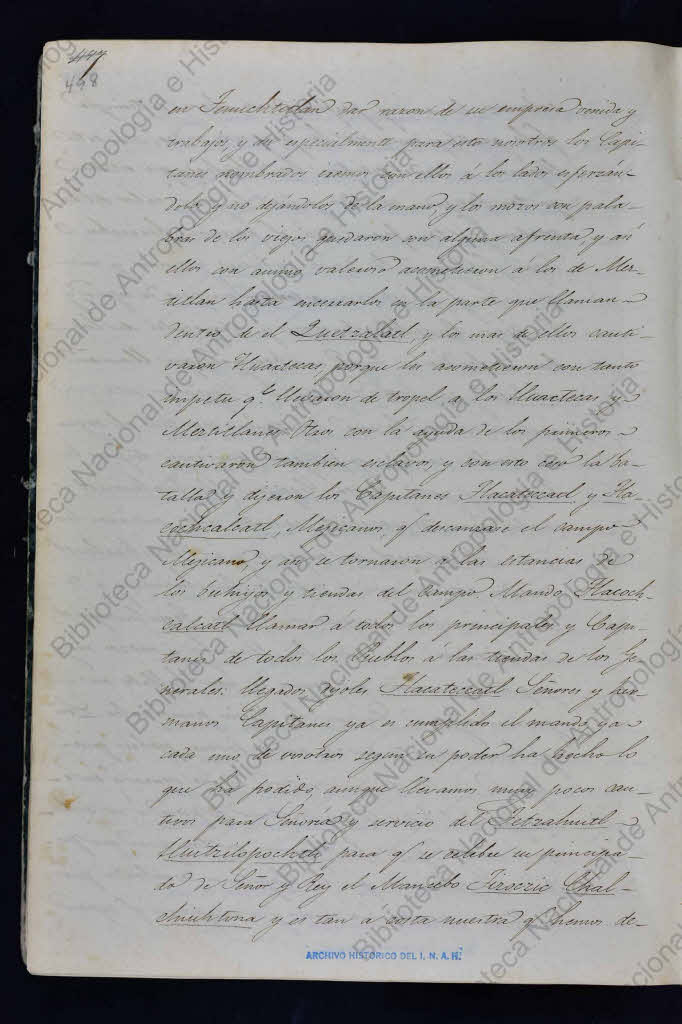 447
448
en Tenuchtitlan dar razon de su empresa venida y
trabajos, y au especialmente para esto nosotros los Capi-
tanes nombrados iremos con ellos á los lados esforzán-
dolos y no dejándolos de la mano, y los mozos con pala-
bras de los viejos quedaron con alguna afrenta, y así
ellos con ánimo valeroso acometieron á los de Mez-
titlan hasta encerrarlos en la parte que llaman
dentro de el Quetzalatl, y los mas de ellos cauti-
varon Huaxtecas, porque los acometieron con tanto
impetu q.e llevaron de tropel a los Huaxtecas y
Meztitlanes. Otros con la ayuda de los primeros
cautivaron tambien esclavos, y con esto cesó la ba-
talla, y dijeron los Capitanes Tlacateccatl, y Tla-
cochcalcatl, Mejicanos, q.e descansase el campo
Mejicano, y así se tornaron a las estancias de
los buhiyos y tiendas del Campo. Mandó Tlacoch-
calcatl llamar á todos los principales y Capi-
tanes de todos los Pueblos á las tiendas de los Ge-
nerales: llegados, dijoles Tlacateccatl Señores y her-
manos Capitanes ya es cumplido el mando, ya
cada uno de vosotros segun su poder ha hecho lo
que ha podido, aunque llevamos muy pocos cau-
tivos para Señoría y servicio del Tetzahuitl
Huitzilopochtli para q.e se celebre su principa-
do de Señor y Rey el Mancebo Tizoczic Chal-
chiuhtona y es tan á costa nuestra q.e hemos de-
ARCHIVO HISTORICO DEL I. N. A. H.
Biblioteca Nacional de Antropología e Historia